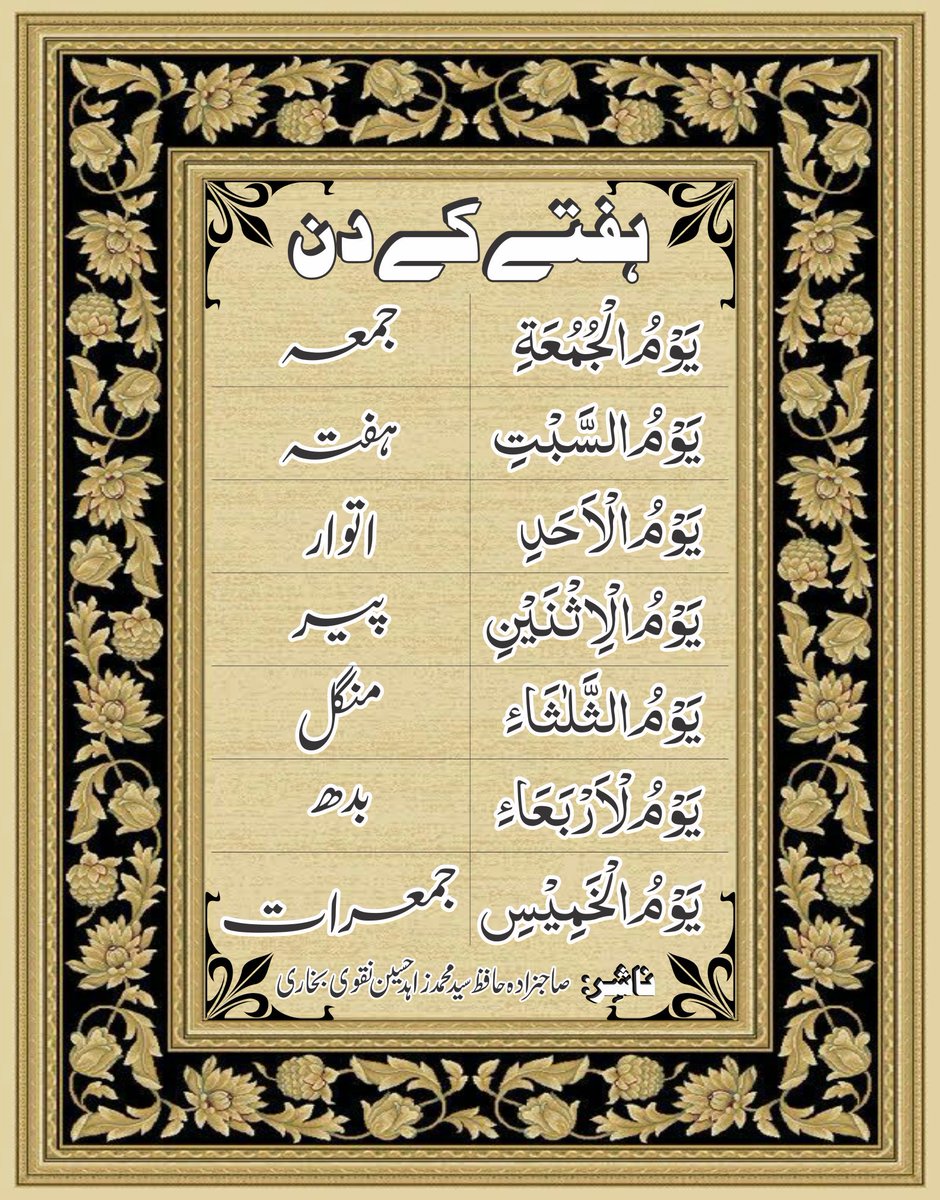 ہفتے کے دن
یَوْمُ الْجُمُعَةِ جمعہ
یَوْمُ السَّبْتِ ہفتہ
یَوْمُ الْاَحَدِ اتوار
یَوْمُ الْاِثْنَیْنِ پیر
یَوْمُ الثَّلٰثَاءِ منگل
یَوْمُ لْاَرْبَعَاءِ بدھ
یَوْمُ الْخَمِیْسِ جمعرات
ناشر: صاحبزادہ حافظ سید محمد زاہد حسین نقوی بخاری